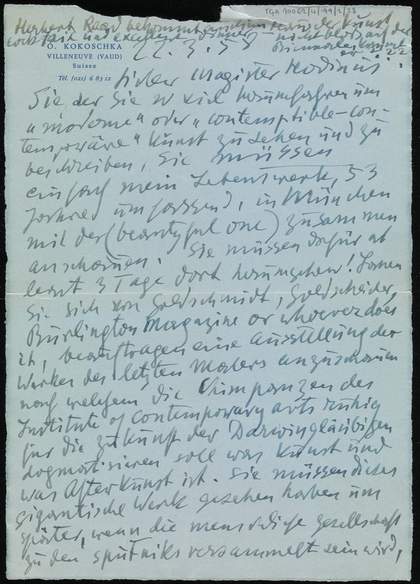 TGA 
Herbert Read bekommt
der Kunst
O. KOKOSCHKA
VILLENEUVE (VAUD)
Suisse
Tél. (021) 6 85 12
22.3.58
Lieber Magister Hodin!
Sie der Sie so viel herumfahren um
"moderne" oder "contemptible-con-
temporäre" Kunst zu sehen und zu
beschreiben, Sie müssen
einfach mein Lebenswerk, 53
Jahre umfassend, in München
mit der (beautyful one) zusammen
anschauen. Sie müssen dafür at
least 3 Tage dort herumgehen! Lassen
Sie sich von Goldschmidt, Goldscheider,
Burlington Magazine or whoever does
it, beauftragen eine Ausstellung der
Werke des letzten Malers anzuschauen
nach welchem die Chimpanzen des
Institute of Contemporary arts ruhig
für die Zukunft der Darwingläubigen
dogmatisieren soll was Kunst und
was Afterkunst ist. Sie müssen dieses
gigantische Werk gesehen haben um
später, wenn die menschliche Gesellschaft
zu den Sputniks versammelt sein wird,